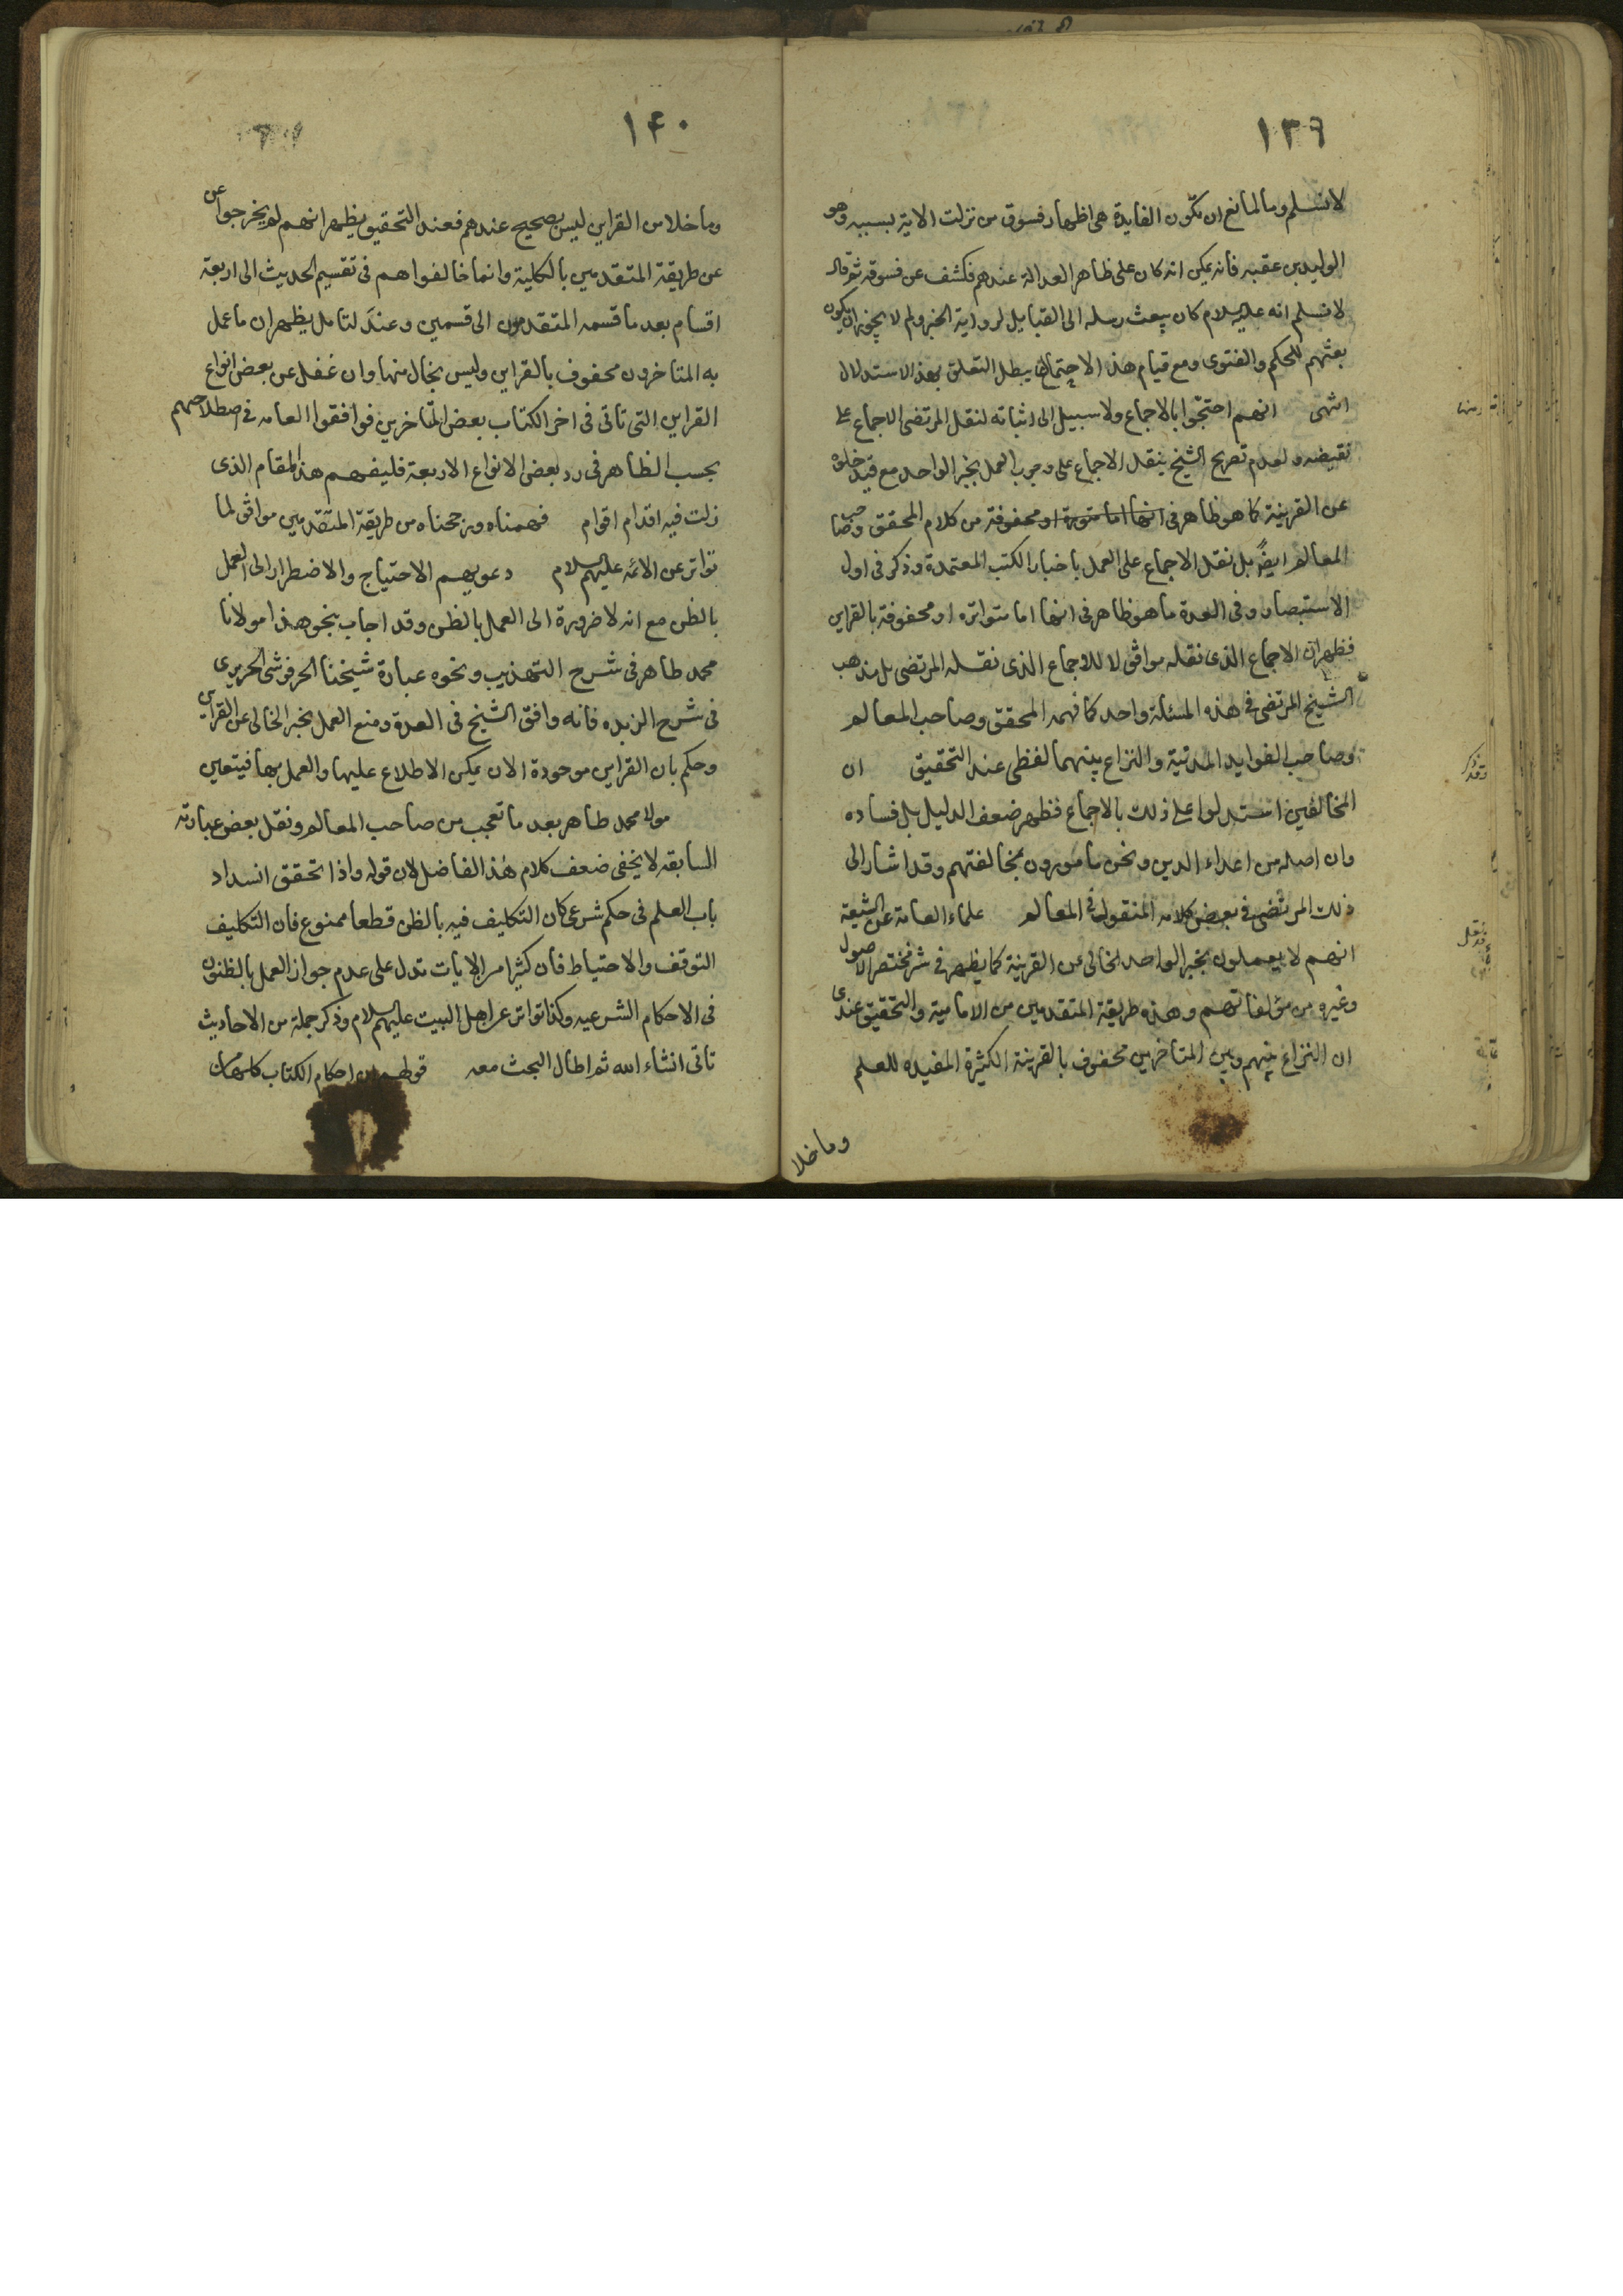 ١٣٩
لا نسلم وما المانع ان تكون الفايدة هى اظهار فسوق من نزلت الاية بسببه وهو
الوليد بن عقبه فانه يمكن انه كان على ظاهر العدالة عندهم فكشف عن فسوقه ثم قال
لا نسلم انه عليه السلام كان يبعث رسله الى القبايل لرواية الخبر ولم لا يجوز ان يكون
بعثهم للحكم والفتوى ومع قيام هذا الاحتمال يبطل التعلق بهذا الاستدلال
انتهى انهم احتجوا بالاجماع ولا سبيل الى اثباته لنقل المرتضى الاجماع على
نقيضه ولعدم تصريح الشيخ بنقل الاجماع على وجوب العمل بخبر الواحد مع قيد خلوه
عن القرينة كما هو ظاهر فى انها اما متورة او محفوفة من كلام المحقق وصاحب
المعالم ايضً بل نقل الاجماع على العمل باخبار الكتب المعتمدة وذكر فى اول
الاستبصار وفى العدة ما هو ظاهر فى انها اما متواتره او محفوفة بالقراين
فظهر ان الاجماع الذى نقله موافق لا للاجماع الذى نقله المرتضى بل مذهب
الشيخ المرتضى فى هذه المسئلة واحد كما فهمه المحقق وصاحب المعالم
وصاحب الفوايد المدنية والنزاع بينهما لفظى عند التحقيق ان
المخالفين استدلوا على ذلك بالاجماع فظهر ضعف الدليل بل فساده
وان اصله من اعداء الدين ونحن مامورون بمخالفتهم وقد اشار الى
ذلك المرتضى فى بعض كلامه المنقول فى المعالم علماء العامة عن الشيعة
انهم لا يعملون بخبر الواحد الخالى عن القرينة كما يظهر فى شرح مختصر الاصول
وغيره من مؤلفاتهم وهذه طريقة المتقدمين من الامامية والتحقيق عندى
ان النزاع بينهم وبين المتاخرين محفوف بالقرينة الكثيرة المفيده للعلم
وما خلا
١۴٠
وما خلا من القراين ليس بصحيح عندهم فعند التحقيق يظهر انهم لم يخرجوا عن
عن طريقة المتقدمين بالكلية وانما خالفواهم فى تقسيم الحديث الى اربعة
اقسام بعد ما قسمه المتقدمون الى قسمين وعند لتامل يظهر ان ما عمل
به المتاخرون محفوف بالقراين وليس بخال منها وان غفل عن بعض انواع
القراين التى تاتى فى اخر الكتاب بعض المتاخرين فوافقوا العامه فى اصطلاحهم
بحسب الظاهر فى رد بعض الانواع الاربعة فليفهم هذا المقام الذى
زلت فيه اقدام اقوام فهمناه ورجحناه من طريقة المتقدمين موافق لما
تواتر عن الائمه عليهم السلام دعويهم الاحتياج والاضطرار الى العمل
بالظن مع انه لا ضرورة الى العمل بالظن وقد اجاب بنحو هذا مولانا
محمد طاهر فى شرح التهذيب ونحوه عبارة شيخنا الحرفوشى الحريرى
فى شرح الزبده فانه وافق الشيخ فى العدة ومنع العمل بخبر الخالى عن القراين
وحكم بان القراين موجودة الان يمكن الاطلاع عليها والعمل بها فيتعين
مولا محمد طاهر بعد ما تعجب من صاحب المعالم ونقل بعض عبارته
السابقه لا يخفى ضعف كلام هذا الفاضل لان قوله واذا تحقق انسداد
باب العلم فى حكم شرعى كان التكليف فيه بالظن قطعا ممنوع فان التكليف
التوقف والاحتياط فان كثيرا من الايات تدل على عدم جواز العمل بالظنون
فى الاحكام الشرعيه وكذا تواتر عن اهل البيت عليهم السلام وذكر جملة من الاحاديث
تاتى انشاء الله ثم اطال البحث معه قولهم ان احكام الكتاب كلها